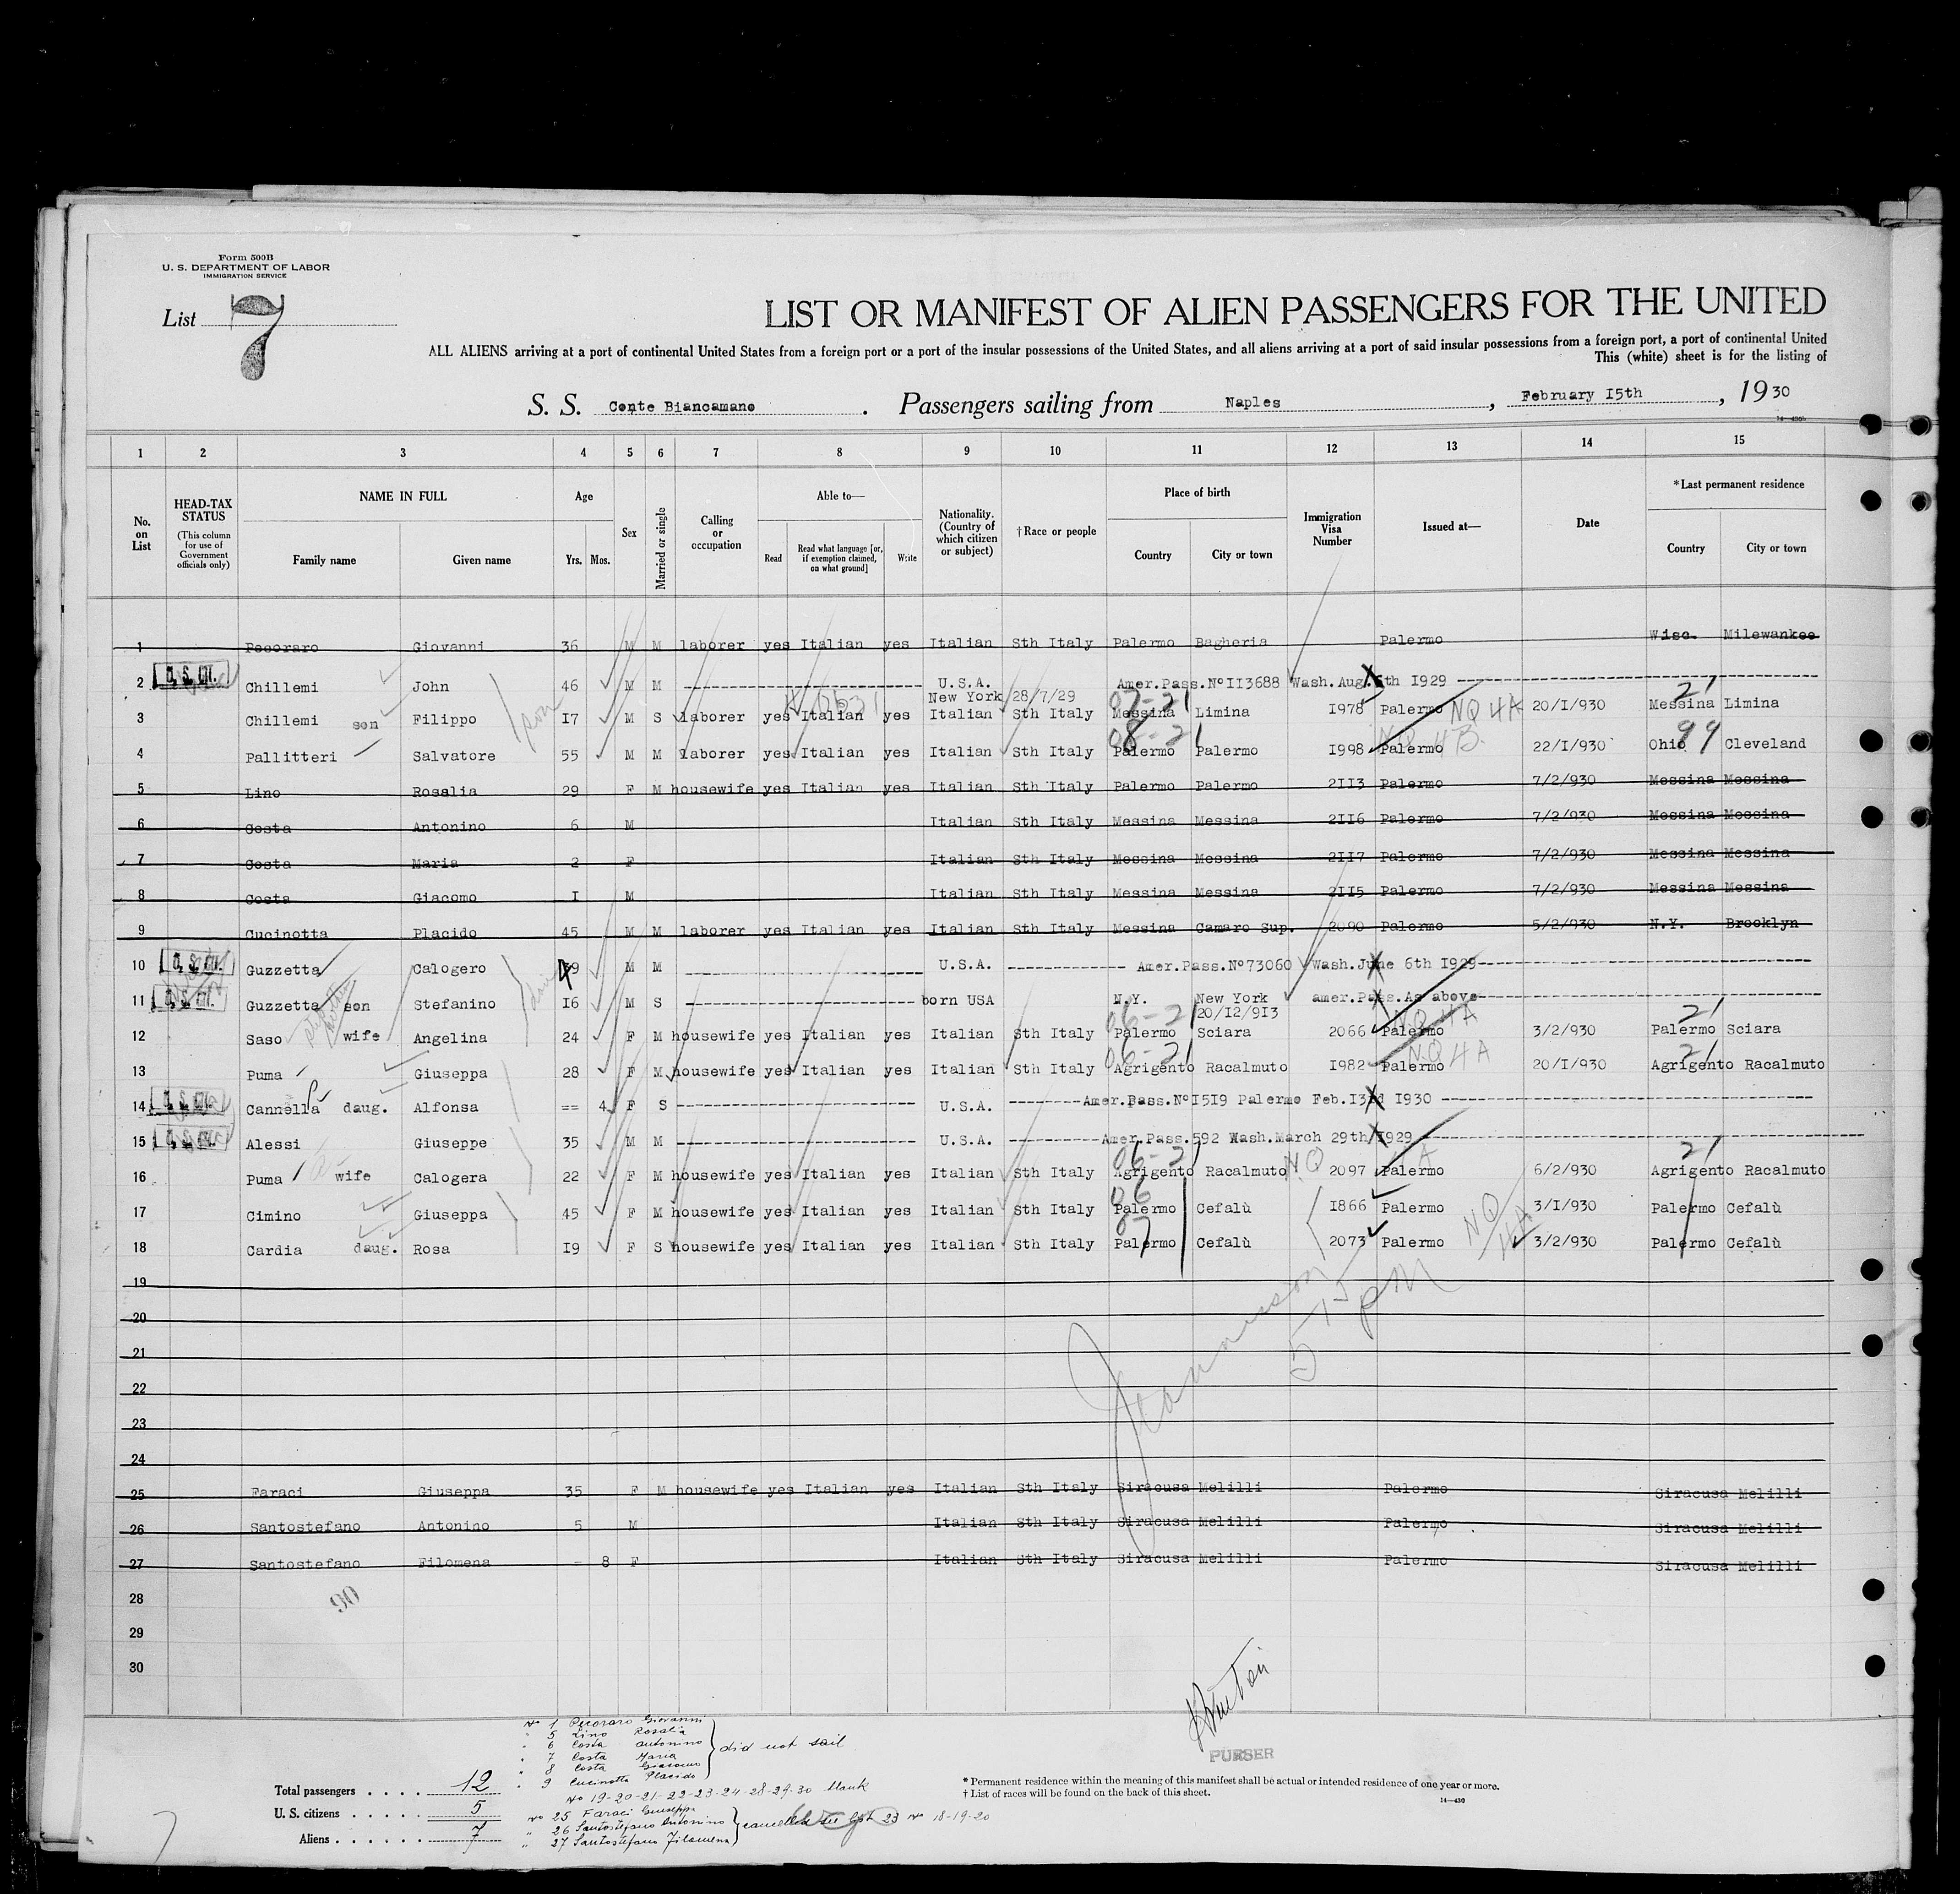 Form 500B
U. S. DEPARTMENT OF LABOR
IMMIGRATION SERVICE
List 7
LIST OR MANIFEST OF ALIEN PASSENGERS FOR THE UNITED
ALL ALIENS arriving at a port of continental United States from a foreign port or a port of the insular possessions of the United States, and all aliens arriving at a port of said insular possessions from a foreign port, a port of continental United
This (white) sheet is for the listing of
S. S. Conte Biancamano. Passengers sailing from Naples, February I5th, 1930
1 2 3 4 5 6 7 8 9 10 11 12 13 14 15
No. on List
HEAD-TAX STATUS (This column for use of Government officials only)
NAME IN FULL
Family name Given name
Age
Yrs. Mos.
Sex
Married or single
Calling or occupation
Able to—
Read Read what language [or, if exemption claimed, on what ground] Write
Nationality. (Country of which citizen or subject)
†Race or people
Place of birth
Country City or town
Immigration Visa Number
Issued at—
Date
*Last permanent residence
Country City or town
1 Pecoraro Giovanni 36 M M laborer yes Italian yes Italian Sth Italy Palermo Bagheria Palermo Wisc. Milewankee
2 Chillemi John 46 M M U.S.A. Amer.Pass.Nº II3688 Wash.Aug. 6th I929
New York 28/7/29
3 Chillemi son Filippo I7 M S laborer yes Italian yes Italian Sth Italy Messina Limina I978 Palermo NQ 4A 20/I/930 Messina Limina
07-21 21
4 Pallitteri Salvatore 55 M M laborer yes Italian yes Italian Sth Italy Palermo Palermo I998 Palermo 22/I/930 Ohio Cleveland
08-21 99
5 Lino Rosalia 29 F M housewife yes Italian yes Italian Sth Italy Palermo Palermo 2II3 Palermo 7/2/930 Messina Messina
6 Costa Antonino 6 M Italian Sth Italy Messina Messina 2II6 Palermo 7/2/930 Messina Messina
7 Costa Maria 2 F Italian Sth Italy Messina Messina 2II7 Palermo 7/2/930 Messina Messina
8 Costa Giacomo I M Italian Sth Italy Messina Messina 2II5 Palermo 7/2/930 Messina Messina
9 Cucinotta Placido 45 M M laborer yes Italian yes Italian Sth Italy Messina Camaro Sup. 2090 Palermo 5/2/930 N.Y. Brooklyn
10 Guzzetta Calogero 49 M M U.S.A. Amer.Pass.Nº73060 Wash.June 6th I929
11 Guzzetta son Stefanino I6 M S born USA N.Y. New York amer.Pass.As above
20/I2/9I3
12 Saso wife Angelina 24 F M housewife yes Italian yes Italian Sth Italy Palermo Sciara 2066 Palermo 3/2/930 Palermo Sciara
06-21 NQ 4A 21
13 Puma Giuseppa 28 F M housewife yes Italian yes Italian Sth Italy Agrigento Racalmuto I982 Palermo 20/I/930 Agrigento Racalmuto
06-21 NQ 4A 21
14 Cannella daug. Alfonsa == 4 F S U.S.A. Amer.Pass.NºI5I9 Palermo Feb.I3 I930
15 Alessi Giuseppe 35 M M U.S.A. Amer.Pass.592 Wash.March 29th I929
16 Puma wife Calogera 22 F M housewife yes Italian yes Italian Sth Italy Agrigento Racalmuto NQ 2097 Palermo 6/2/930 Agrigento Racalmuto
06-21 21
17 Cimino Giuseppa 45 F M housewife yes Italian yes Italian Sth Italy Palermo Cefalù I866 Palermo 3/I/930 Palermo Cefalù
06
18 Cardia daug. Rosa I9 F S housewife yes Italian yes Italian Sth Italy Palermo Cefalù 2073 Palermo NQ 4A 3/2/930 Palermo Cefalù
07
19
20
21
22
23
24
5 15 pm
25 Faraci Giuseppa 35 F M housewife yes Italian yes Italian Sth Italy Siracusa Melilli Palermo Siracusa Melilli
26 Santostefano Antonino 5 M Italian Sth Italy Siracusa Melilli Palermo Siracusa Melilli
27 Santostefano Filomena - 8 F Italian Sth Italy Siracusa Melilli Palermo Siracusa Melilli
28
90
29
30
Nº 1 Pecoraro Giovanni
" 5 Lino Rosalia
" 6 Costa Antonino
" 7 Costa Maria
" 8 Costa Giacomo
" 9 Cucinotta Placido
did not sail
Nº 19-20-21-22-23-24-28-29-30 blank
Nº 25 Faraci Giuseppa
" 26 Santostefano Antonino
" 27 Santostefano Filomena
cancelled see list 23 Nº 18-19-20
Total passengers . . . . 12
U. S. citizens . . . . . 5
Aliens . . . . . . 7
PURSER
* Permanent residence within the meaning of this manifest shall be actual or intended residence of one year or more.
† List of races will be found on the back of this sheet.
14—430